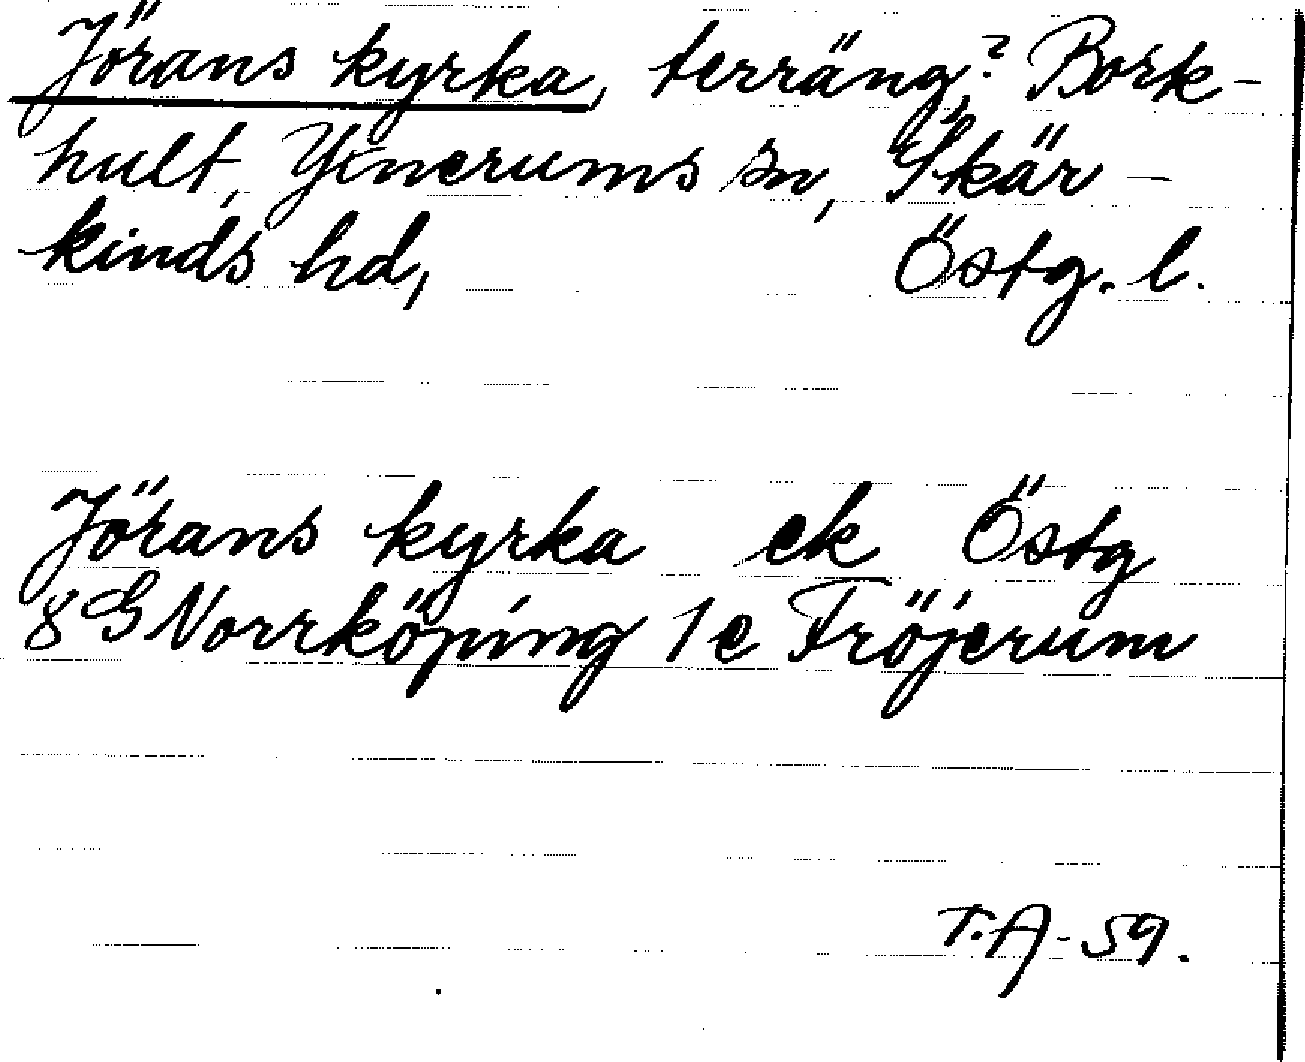 Jörans kyrka, terräng? Bork-
hult, Yxnerums sn, Skär-
kinds hd, Östg. l.
Jörans kyrka ek Östg
8 G Norrköping 1 e Fröjerum
T.A-59.